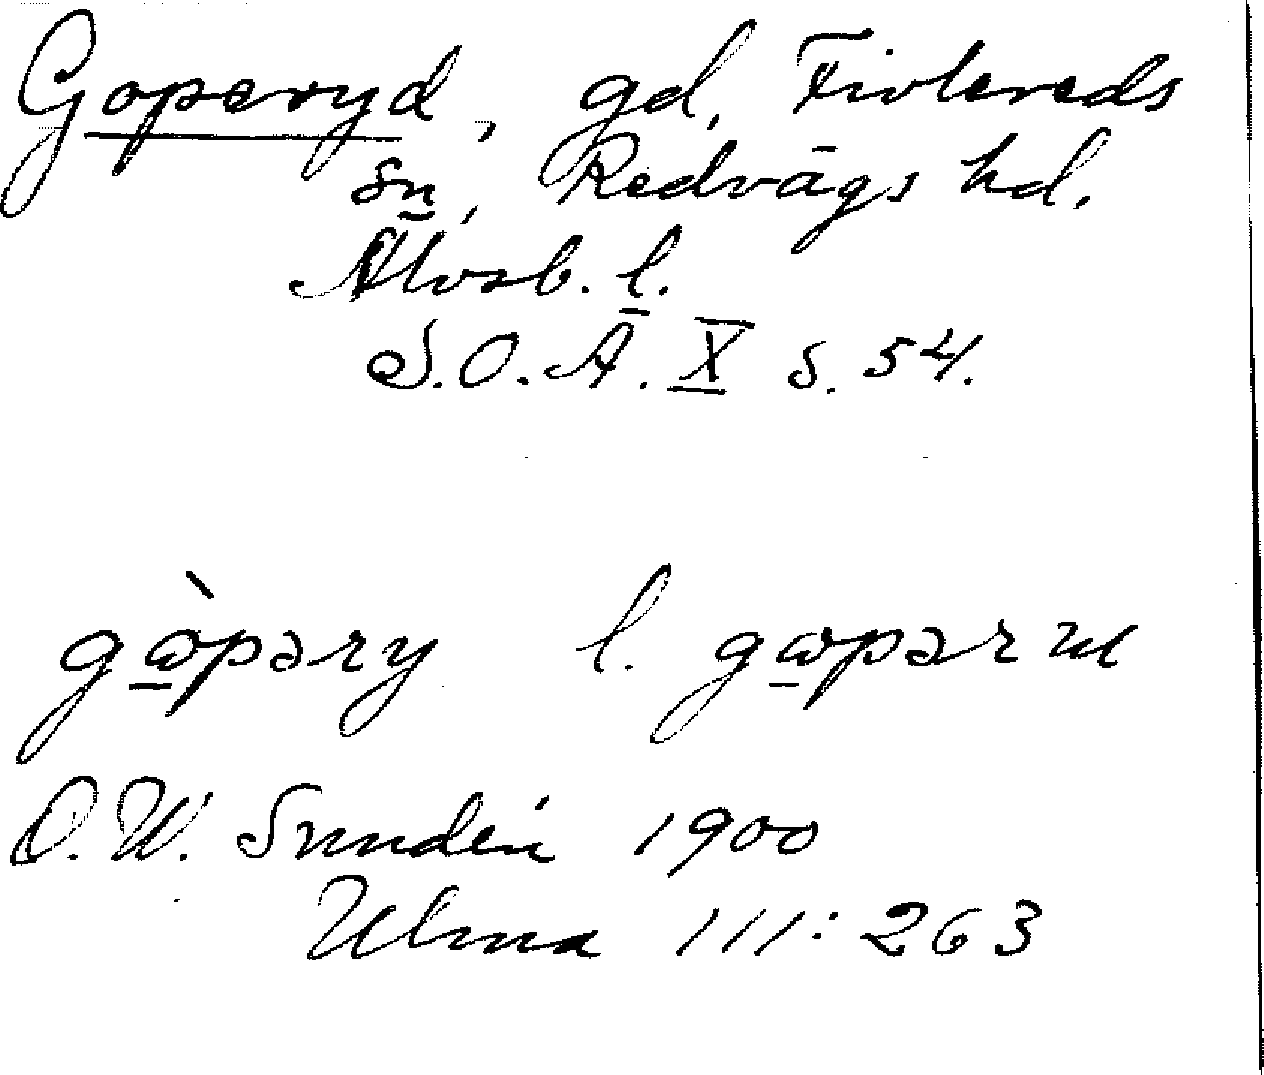 Goperyd, gd, Finlereds
sn, Redvägs hd.
Älvsb. l.
S.O.Ä. X s. 54.
gɷ̀pəry l. gɷpərɪɪ
O.W. Sundén 1900
Ulma 111:263